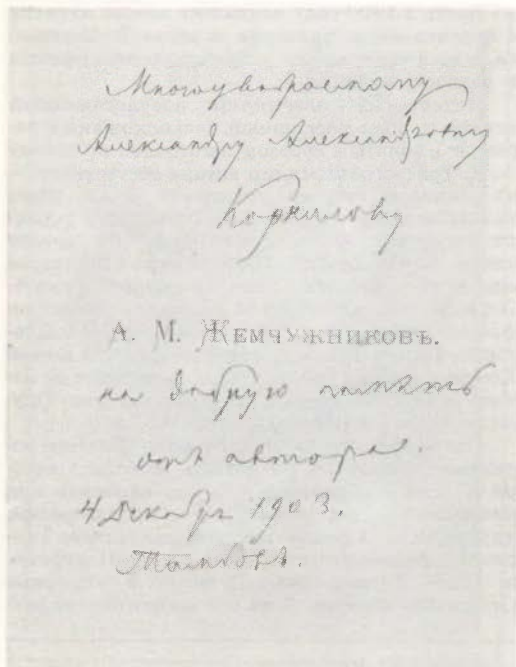 Многоуважаемому
Александру Александровичу
Корнилову
А. М. Жемчужниковъ.
на добрую память
отъ автора.
4 Декабря 1903.
Тамбовъ.